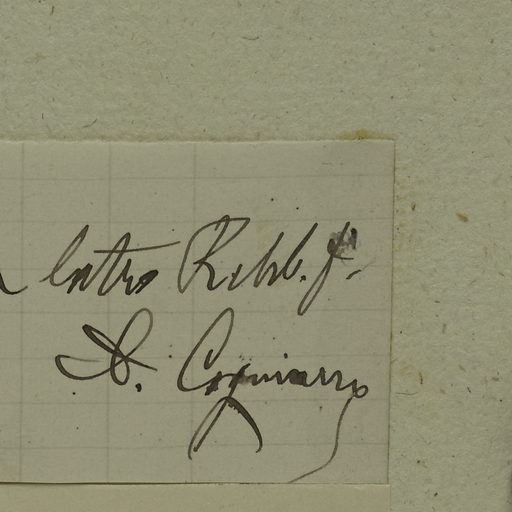 latro Rchb. f.
A. Cogniaux